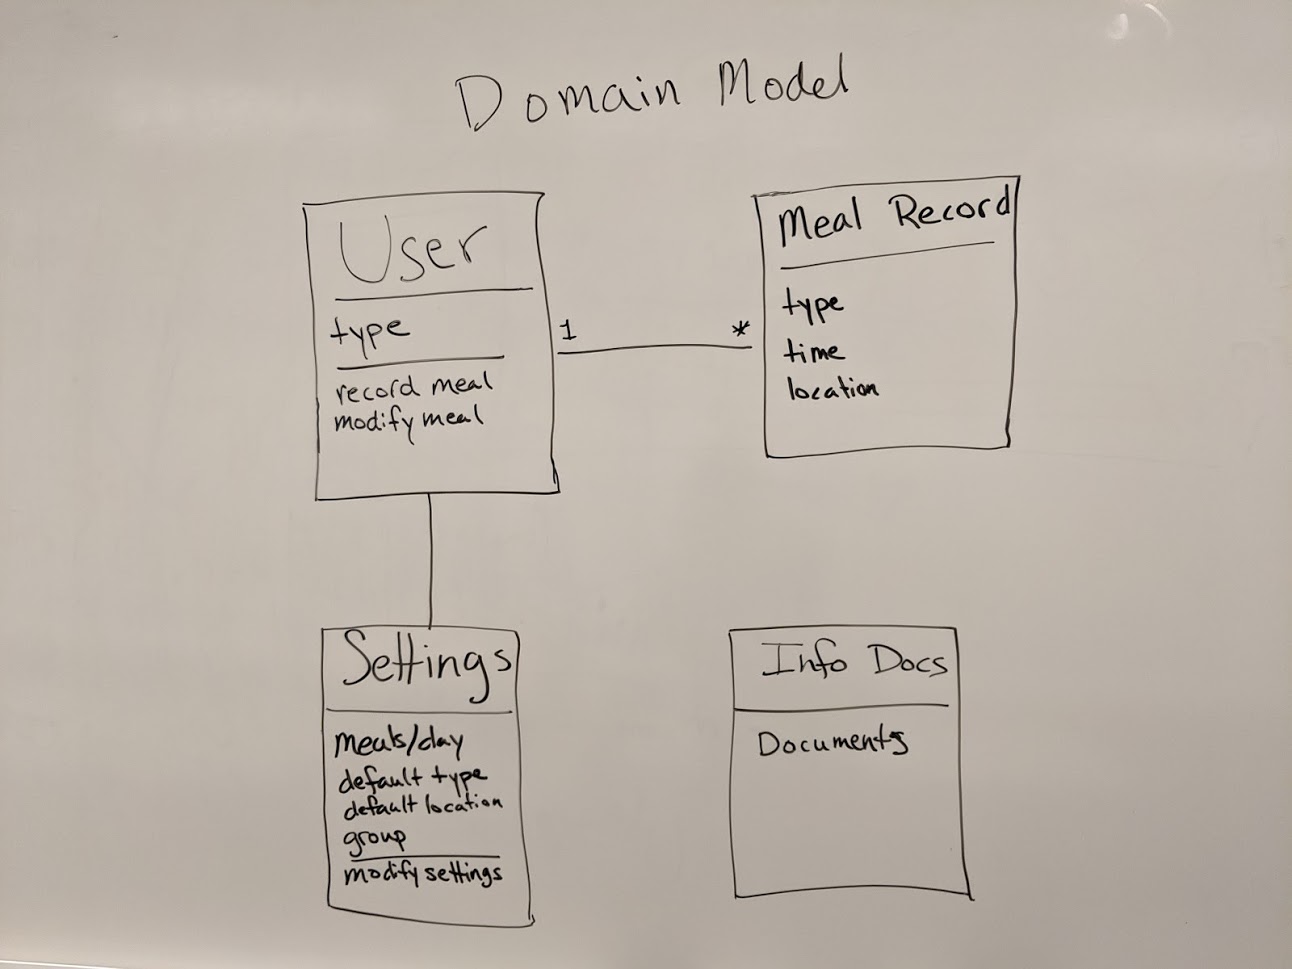 Domain Model
User
type
record meal
modify meal
1
*
Meal Record
type
time
location
Settings
meals/day
default type
default location
group
modify settings
Info Docs
Documents